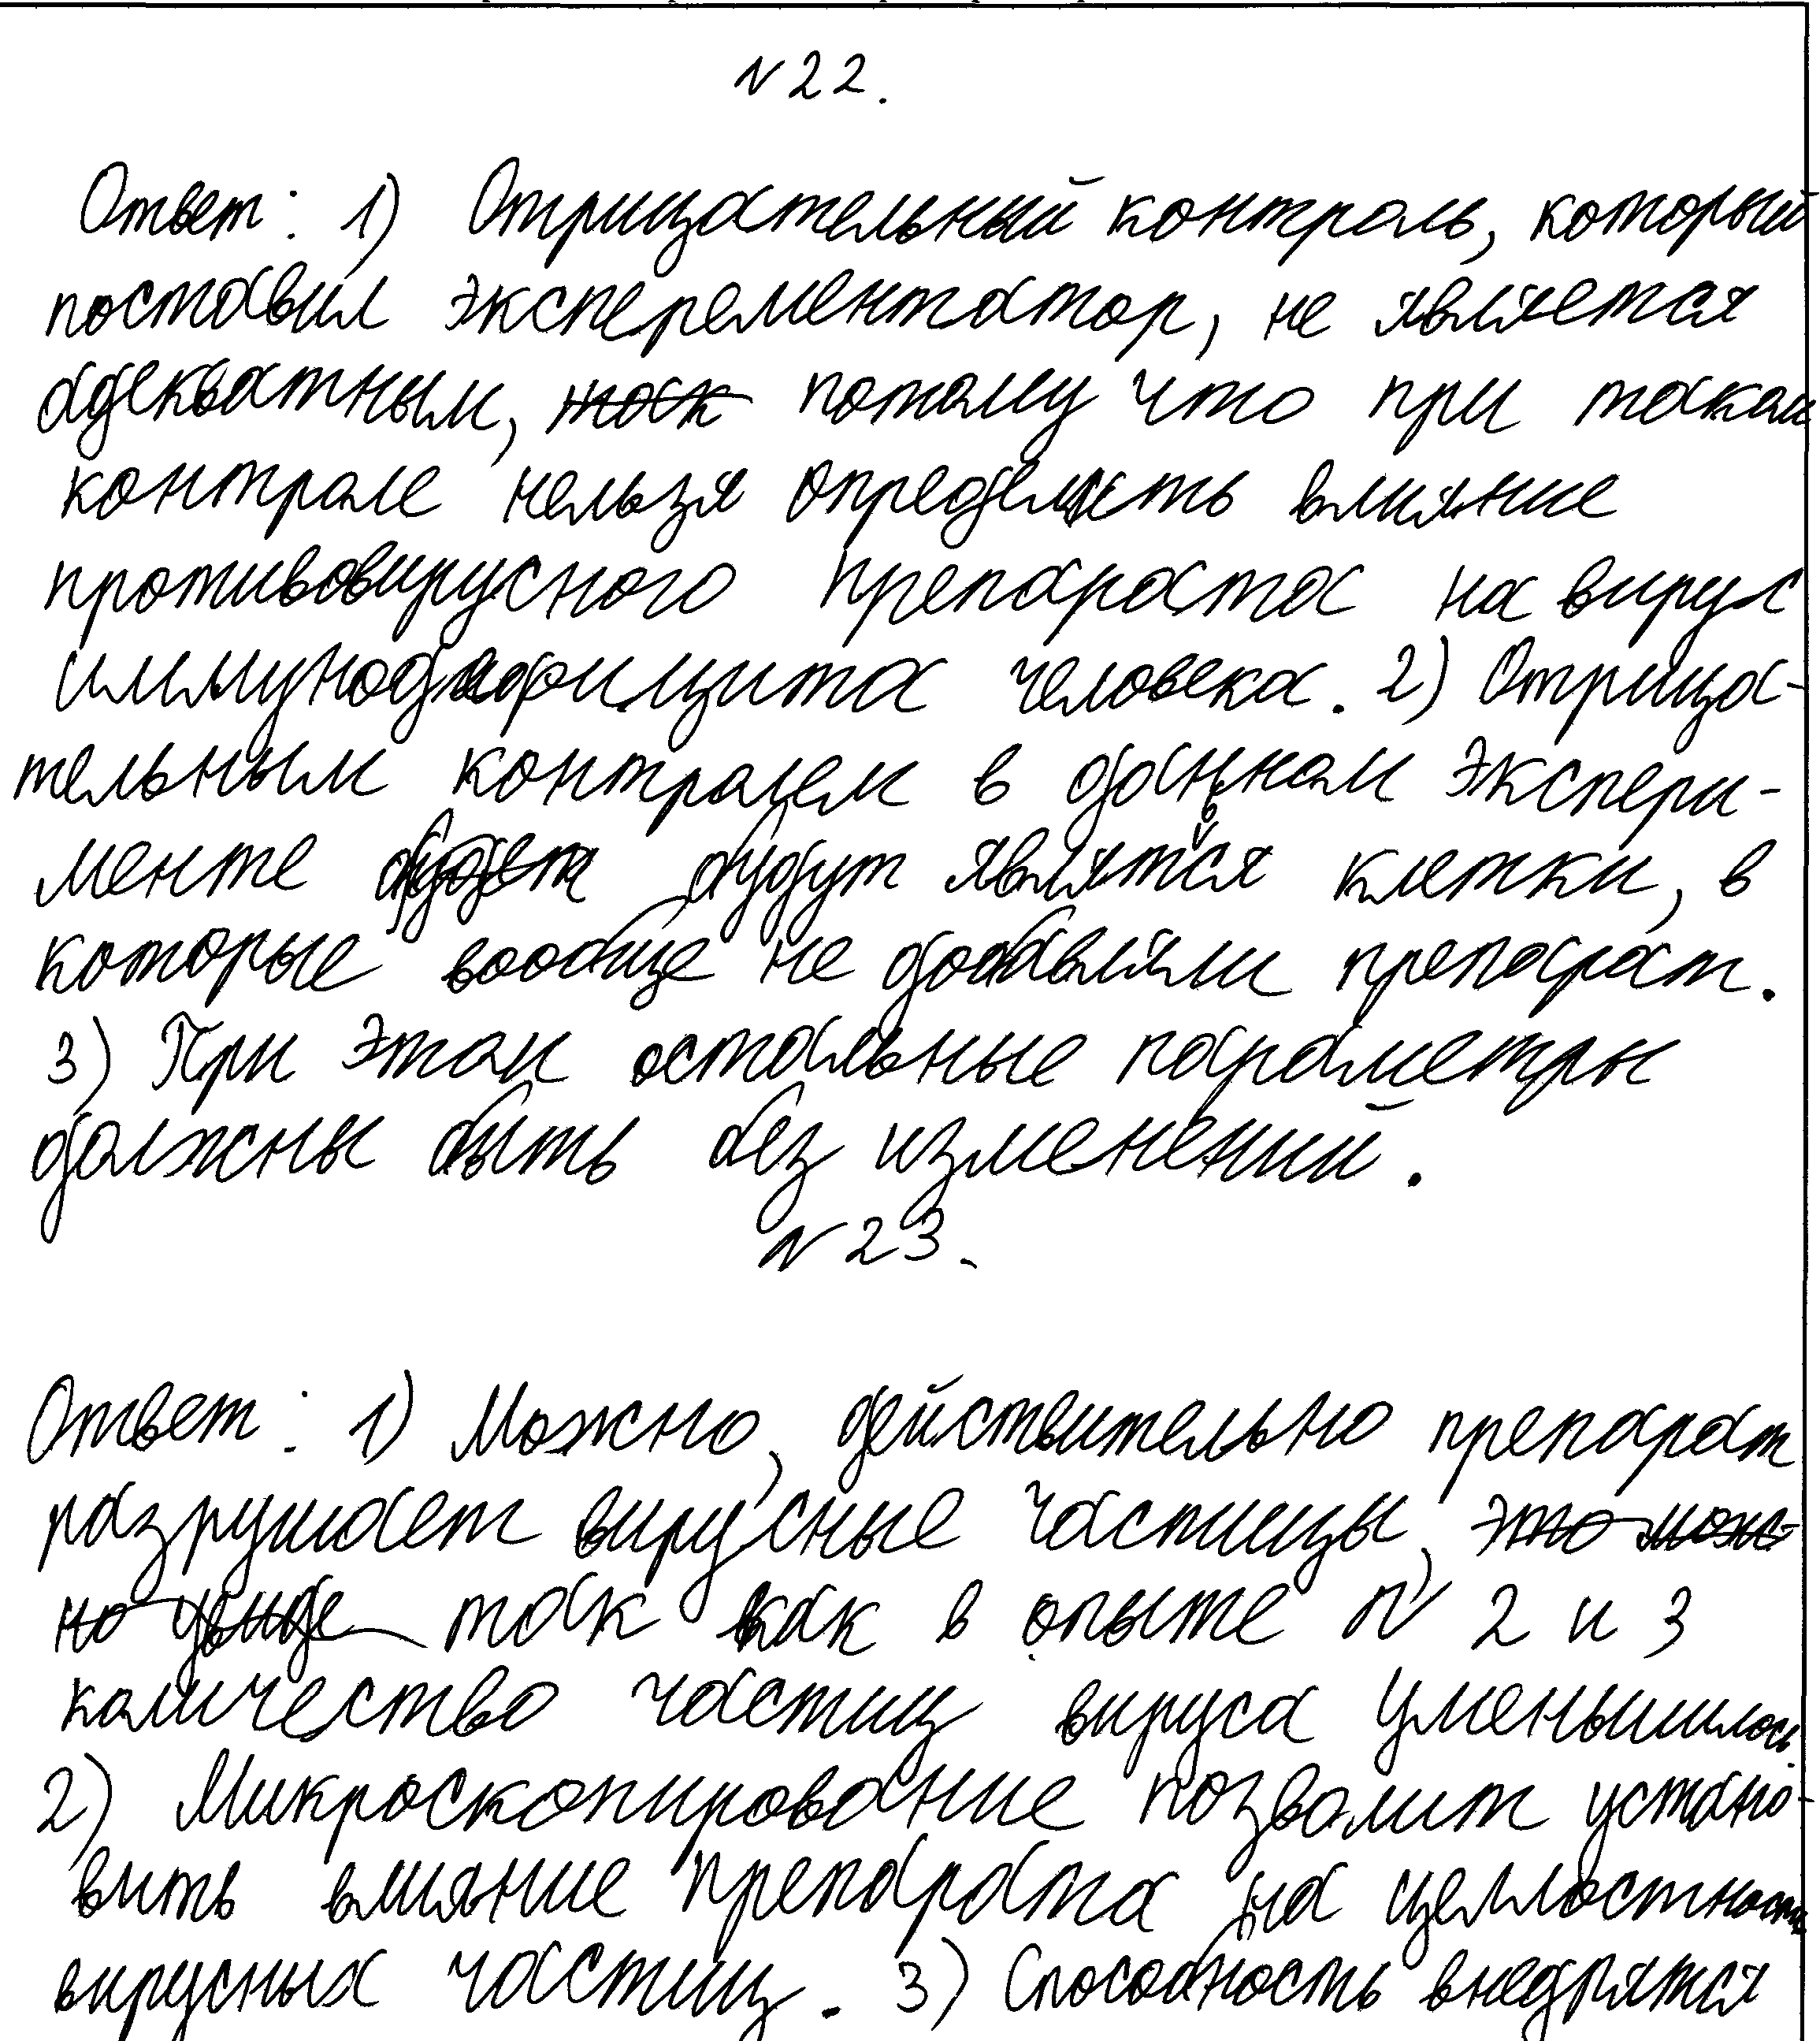 N 22.
Ответ: 1) Отрицательный контроль, который
поставил эксперементатор, не является
адекватным, так потому что при таком
контроле нельзя определить влияние
противовирусного препарата на вирус
иммунодефицита человека. 2) Отрица-
тельным контролем в данном экспери-
менте будет будут являться клетки, в
которые вообще не добавляли препарат.
3) При этом остальные параметры
должны быть без изменений.
N 23.
Ответ: 1) Можно, действительно препарат
разрушает вирусные частицы, это мож-
но увиде так как в опыте N 2 и 3
количество частиц вируса уменьшилось.
2) Микроскопирование позволит устано-
вить влияние препарата на целлостность
вирусных частиц. 3) Способность внедрятся